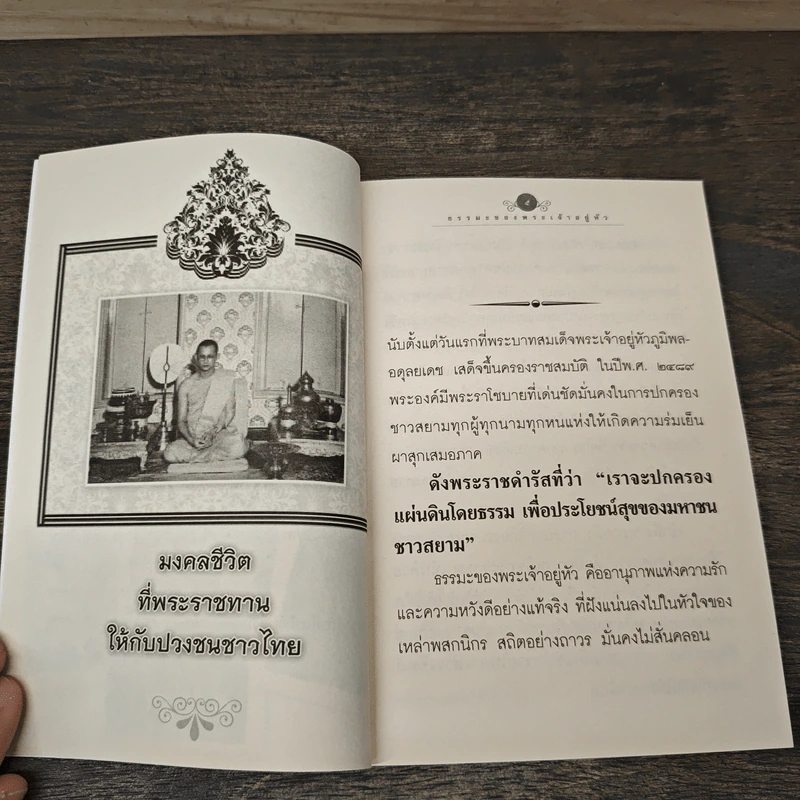 มงคลชีวิต
ที่พระราชทาน
ให้กับปวงชนชาวไทย
ธรรมะของพระเจ้าอยู่หัว
นับตั้งแต่วันแรกที่พระบาทสมเด็จพระเจ้าอยู่หัวภูมิพล-
อดุลยเดช เสด็จขึ้นครองราชสมบัติ ในปีพ.ศ. ๒๔๘๙
พระองค์มีพระราโชบายที่เด่นชัดมั่นคงในการปกครอง
ชาวสยามทุกผู้ทุกนามทุกหนแห่งให้เกิดความร่มเย็น
ผาสุกเสมอภาค
ดังพระราชดำรัสที่ว่า “เราจะปกครอง
แผ่นดินโดยธรรม เพื่อประโยชน์สุขของมหาชน
ชาวสยาม”
ธรรมะของพระเจ้าอยู่หัว คืออานุภาพแห่งความรัก
และความหวังดีอย่างแท้จริง ที่ฝังแน่นลงไปในหัวใจของ
เหล่าพสกนิกร สถิตอย่างถาวร มั่นคงไม่สั่นคลอน